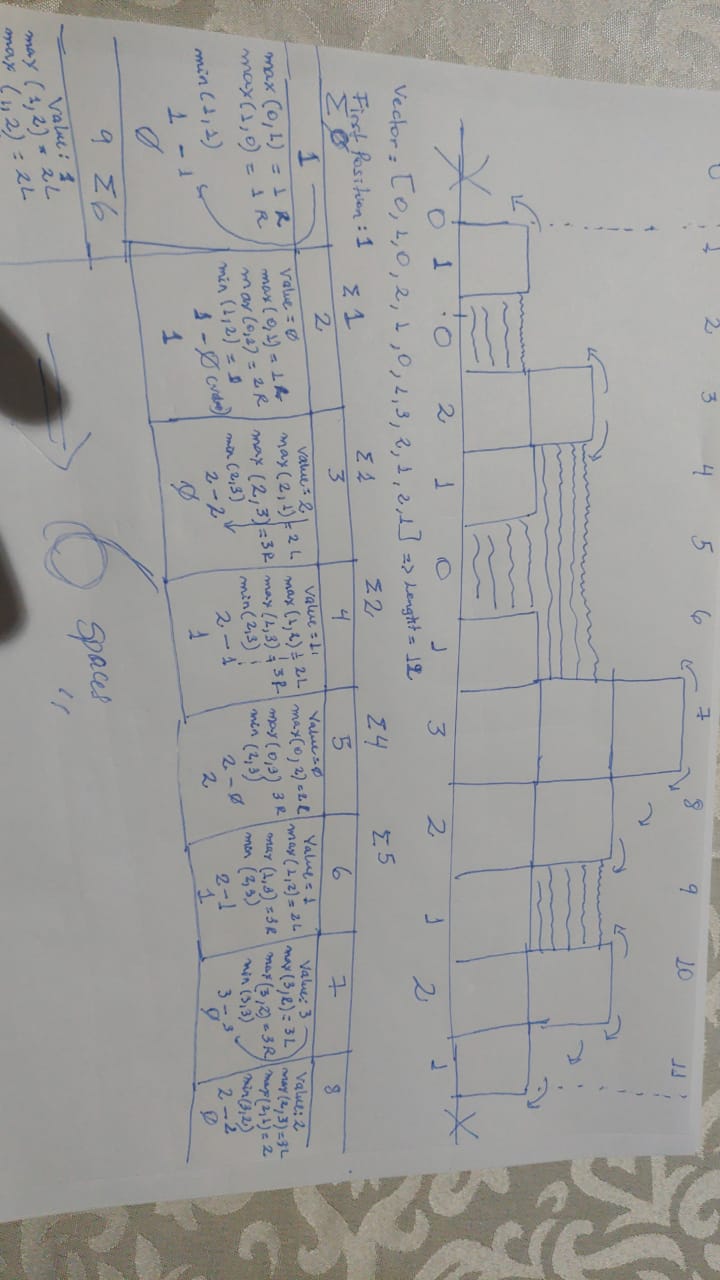 0 1 2 3 4 5 6 7 8 9 10 11
0 1 0 2 1 0 1 3 2 1 2 1
Vector = [0,1,0,2,1,0,1,3,2,1,2,1] => Lenght = 12
First Position: 1
Σ Ø Σ1 Σ1 Σ2 Σ4 Σ5
1
max(0,1) = 1 R
max(1,0) = 1 R
min(1,1)
1 - 1
Ø
2
Value = Ø
max(0,1) = 1R
max(0,2) = 2R
min(1,2) = 1
1 - Ø (value)
1
3
Value = 2
max(2,1) = 2L
max(2,3) = 3R
min(2,3)
2 - 2
Ø
4
Value = 1
max(1,2) = 2L
max(1,3) = 3R
min(2,3)
2 - 1
1
5
Value = Ø
max(0,2) = 2R
max(0,3) 3R
min(2,3)
2 - Ø
2
6
Value = 1
max(1,2) = 2L
max(1,3) = 3R
min(2,3)
2 - 1
1
7
Value: 3
max(3,2) = 3L
max(3,2) = 3R
min(3,3)
3 - 3
Ø
8
Value: 2
max(2,3) = 3L
max(2,1) = 2
min(3,2)
2 - 2
Ø
9 Σ6
Value: 1
max(1,2) = 2L
max(1,2) = 2L
6 spaces